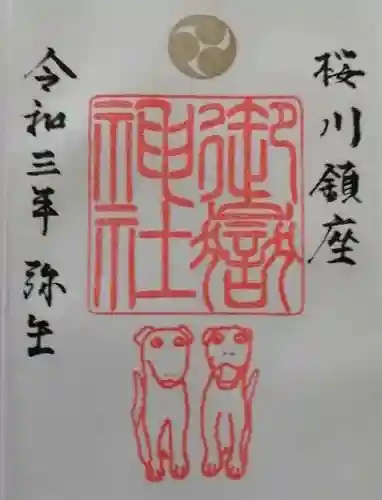 桜川鎮座
御嶽神社
令和三年 弥生